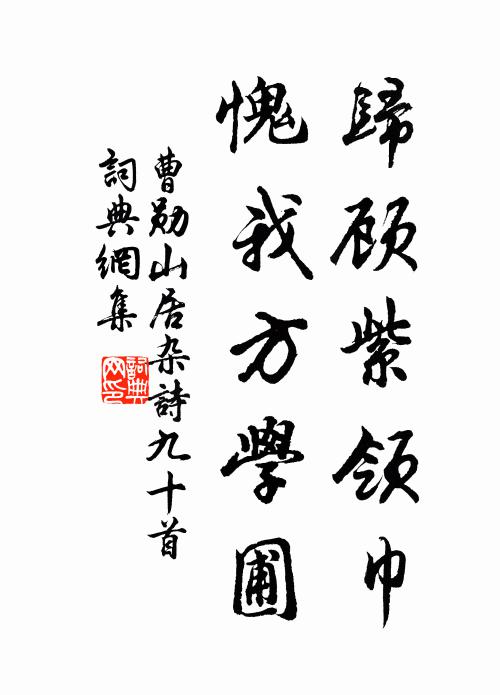 歸顾紫领巾
愧我方學圃
曹勋山居杂詩九十首
詞典網集
詞典網印